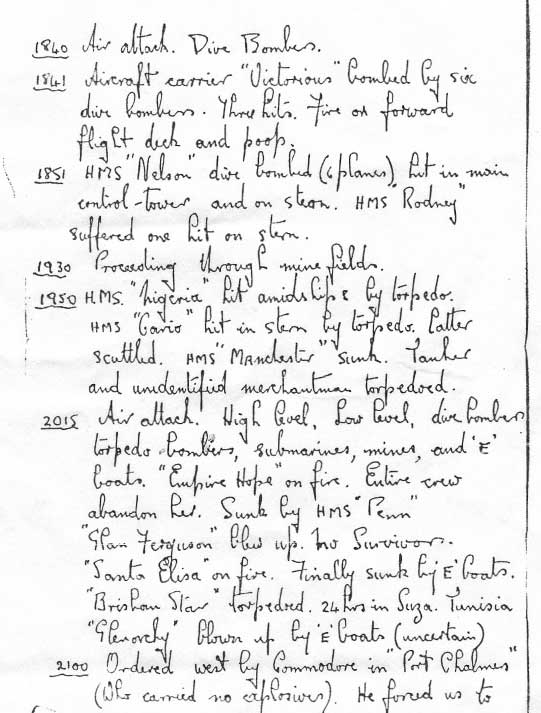 1840 Air attack. Dive Bombers.
1841 Aircraft carrier "Victorious" bombed by six
dive bombers. Three hits. Fire on forward
flight deck and poop.
1851 HMS "Nelson" dive bombed (6 planes) hit in main
control-tower and on stern. HMS "Rodney"
suffered one hit on stern.
1930 Proceeding through mine fields.
1950 H.M.S. "Nigeria" hit amidships by torpedo.
HMS "Cario" hit in stern by torpedo. Latter
scuttled. HMS "Manchester" sunk. Tanker
and unidentified merchantman torpedoed.
2015 Air attack. High level, Low level, dive bombers
torpedo bombers, submarines, mines, and 'E'
boats. "Empire Hope" on fire. Entire crew
abandon her. Sunk by HMS "Penn"
"Glan Ferguson" blew up. No Survivors.
"Santa Elisa" on fire. Finally sunk by 'E' boats.
"Brisban Star" torpedoed. 24 hrs in Suza. Tunisia
"Glenorchy" blown up by 'E' boats (uncertain)
2100 Ordered west by Commodore in "Port Chalmers"
(Who carried no explosives). He forced us to